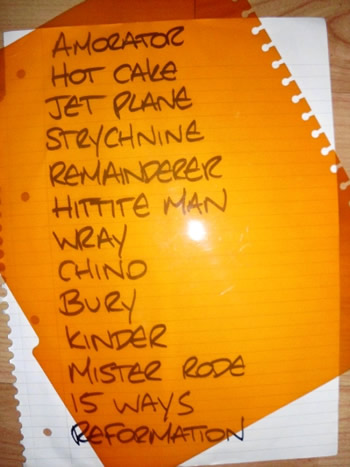 AMORATOR
HOT CAKE
JET PLANE
STRYCHNINE
REMAINDERER
HITTITE MAN
WRAY
CHINO
BURY
KINDER
MISTER RODE
15 WAYS
REFORMATION